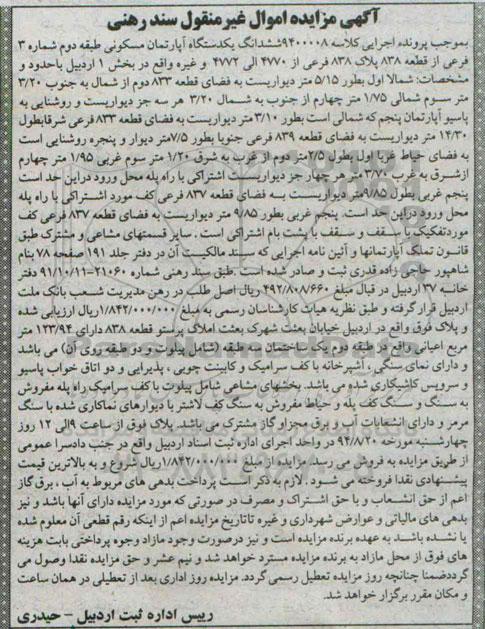 آگهی مزایده اموال غیرمنقول سند رهنی
بموجب پرونده اجرایی کلاسه ۹۴۰۰۰۰۸ششدانگ یکدستگاه آپارتمان مسکونی طبقه دوم شماره ۳
فرعی از قطعه ۸۳۸ پلاک ۸۳۸ فرعی از ۴۷۷۰ الی ۴۷۷۲ و غیره واقع در بخش ۱ اردبیل باحدود و
مشخصات: شمالا اول بطور ۵/۱۵ متر دیواریست به فضای قطعه ۸۳۳ دوم از شمال به جنوب ۳/۲۰
متر سوم شمالی ۱/۷۵ متر چهارم از جنوب به شمال ۳/۲۰ هر سه جز دیواریست و روشنایی به
پاسیو آپارتمان پنجم که شمالی است بطور ۳/۱۰ متر دیواریست به فضای قطعه ۸۳۳ فرعی شرقابطول
۱۴/۳۰ متر دیواریست به فضای قطعه ۸۳۹ فرعی جنوبا بطور ۷/۵متر دیوار و پنجره روشنایی است
به فضای حیاط غربا اول بطول ۲/۵متر دوم از غرب به شرق ۱/۲۰ متر سوم غربی ۱/۹۵ متر چهارم
ازشرق به غرب ۳/۷۰ متر هر چهار جز دیواریست اشتراکی با راه پله محل ورود دراین حد است
پنجم غربی بطول ۹/۸۵متر دیواریست به فضای قطعه ۸۳۷ فرعی کف مورد اشتراکی با راه پله
محل ورود دراین حد است. پنجم غربی بطور ۹/۸۵ متر دیواریست به فضای قطعه ۸۳۷ فرعی کف
موردتفکیک با سقف و سقف با پشت بام اشتراکی است . سایر قسمتهای مشاعی و مشترک طبق
قانون تملک آپارتمانها و آئین نامه اجرایی که سند مالکیت آن در دفتر جلد ۱۹۱ صفحه ۷۸ بنام
شاهپور حاجی زاده قدری ثبت و صادر شده است .طبق سند رهنی شماره ۲۱۰۶۰-۹۱/۱۰/۱۱ دفتر
خانه ۳۷ اردبیل در قبال مبلغ ۴۹۲/۸۰۸/۶۶۰ ریال اصل طلب در رهن مدیریت شعب بانک ملت
اردبیل قرار گرفته و طبق نظریه هیات کارشناسان رسمی به مبلغ ۱/۸۴۲/۰۰۰/۰۰۰ریال ارزیابی شده
و پلاک فوق واقع در اردبیل خیابان بعثت شهرک بعثت املاک پرستو قطعه ۸۳۸ دارای ۱۲۳/۹۴ متر
مربع اعیانی واقع در طبقه دوم یک ساختمان سه طبقه (شامل پیلوت و دو طبقه روی آن) می باشد
و دارای نمای سنگی ، آشپزخانه با کف سرامیک و کابینت چوبی ، پذیرایی و دو اتاق خواب پاسیو
و سرویس کاشیکاری شده می باشد. بخشهای مشاعی شامل پیلوت با کف سرامیک راه پله مفروش
به سنگ و سنگ کف پله و حیاط مفروش به سنگ کف لاشتر با دیوارهای نماکاری شده با سنگ
مرمر و دارای انشعابات آب و برق مجزا و گاز مشترک می باشد. پلاک فوق از ساعت ۹الی ۱۲ روز
چهارشنبه مورخه ۹۴/۸/۲۰ در واحد اجرای اداره ثبت اسناد اردبیل واقع در جنب دادسرا عمومی
از طریق مزایده به فروش می رسد. مزایده از مبلغ ۱/۸۴۲/۰۰۰/۰۰۰ریال شروع و به بالاترین قیمت
پیشنهادی نقدا فروخته می شود . لازم به ذکر است پرداخت بدهی های مربوط به آب ، برق گاز
اعم از حق انشعاب و یا حق اشتراک و مصرف در صورتی که مورد مزایده دارای آنها باشد و نیز
بدهی های مالیاتی و عوارض شهرداری و غیره تاتاریخ مزایده اعم از اینکه رقم قطعی آن معلوم شده
یا نشده باشد به عهده برنده مزایده است و نیز درصورت وجود مازاد وجوه پرداختی بابت هزینه
های فوق از محل مازاد به برنده مزایده مسترد خواهد شد و نیم عشر و حق مزایده نقدا وصول می
گرددضمنا چنانچه روز مزایده تعطیل رسمی گردد. مزایده روز اداری بعد از تعطیلی در همان ساعت
و مکان مقرر برگزار خواهد شد.
رییس اداره ثبت اردبیل – حیدری